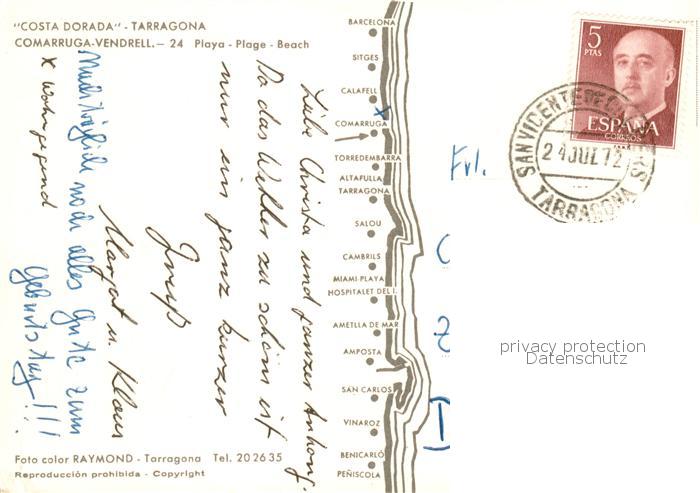 "COSTA DORADA" - TARRAGONA
COMARRUGA-VENDRELL.- 24 Playa - Plage - Beach
BARCELONA
SITGES
CALAFELL
COMARRUGA
TORREDEMBARRA
ALTAFULLA
TARRAGONA
SALOU
CAMBRILS
MIAMI-PLAYA
HOSPITALET DEL I.
AMETLLA DE MAR
AMPOSTA
SAN CARLOS
VINAROZ
BENICARLÓ
PEÑISCOLA
Liebe Christa und ganzer Anhang.
Da das Wetter zu schön ist
nur ein ganz kurzer
Gruß
Margot u. Klaus
Nachträglich noch alles Gute zum
Geburtstag!!!
x Wohngegend
Frl.
5
PTAS
ESPAÑA
CORREOS
SAN VICENTE DE
24 JUL 72
TARRAGONA
privacy protection
Datenschutz
Foto color RAYMOND - Tarragona Tel. 20 26 35
Reproducción prohibida - Copyright